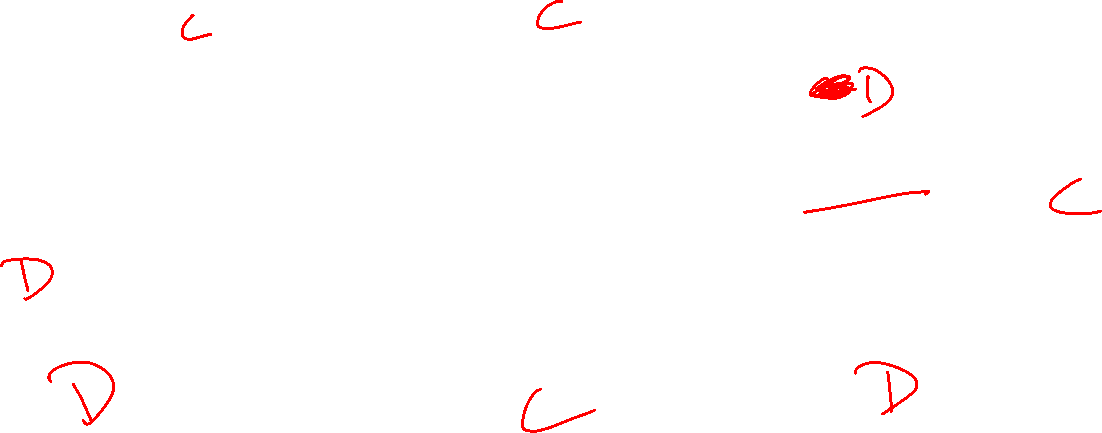 C C
D
C
D
D C D